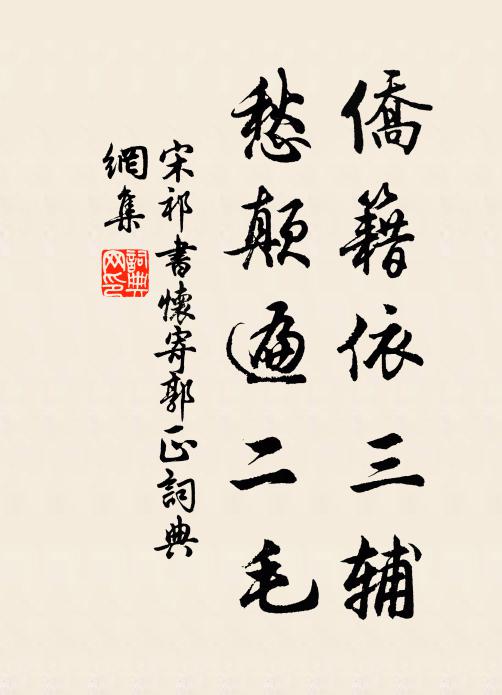 僑籍依三辅
愁颠遍二毛
宋祁書懷寄郭正詞典
網集
詞典
网印